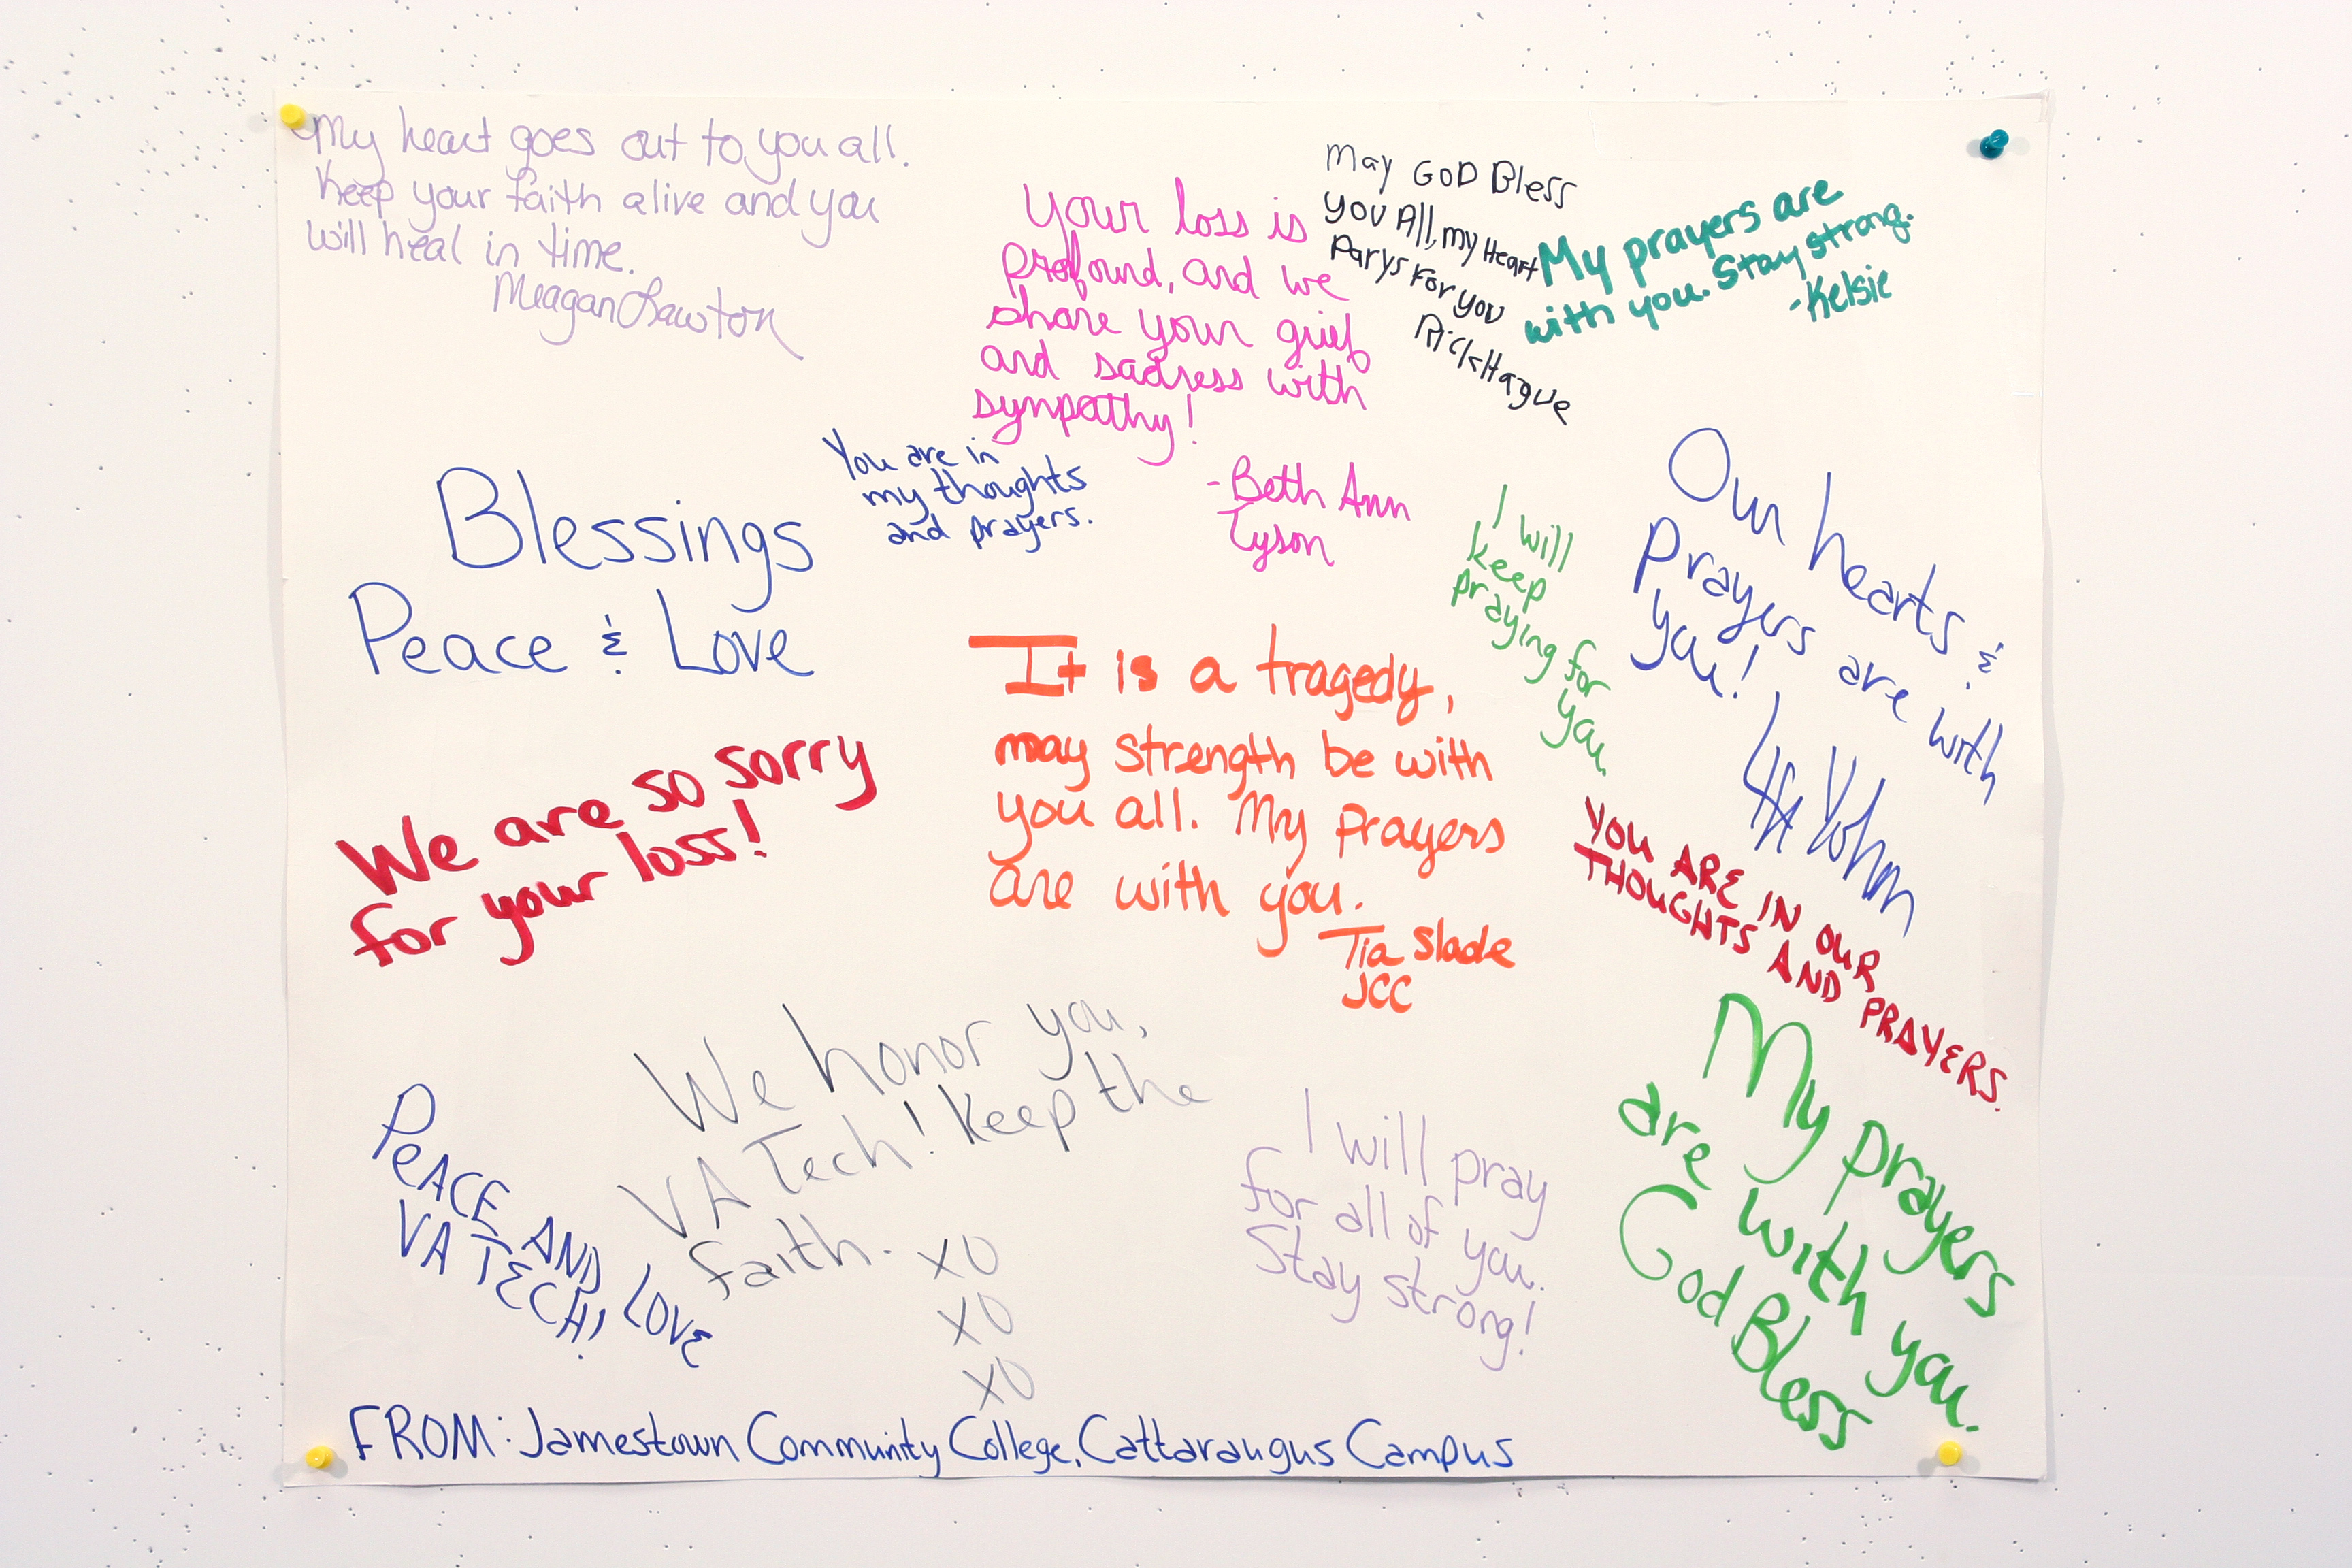 My heart goes out to you all.
Keep your faith alive and you
will heal in time.
Meagan Lawton
Your loss is
profound, and we
share your grief
and sadness with
sympathy!
-Beth Ann
Tyson
May GOD Bless
you All, my Heart
Parys For you
Rick Hague
My prayers are
with you. Stay strong.
-Kelsie
Blessings
Peace & Love
You are in
my thoughts
and prayers.
I will
keep
praying for
you
Our hearts &
prayers are with
you!
Yohm
We are so sorry
for your loss!
It is a tragedy,
may strength be with
you all. My prayers
are with you.
Tia Slade
JCC
YOU ARE IN OUR
THOUGHTS AND PRAYERS.
We honor you,
VA Tech! Keep the
faith.
XO
XO
XO
PEACE AND LOVE
VA TECH!
I will pray
for all of you.
Stay strong!
My prayers
are with you.
God Bless
FROM: Jamestown Community College, Cattaraugus Campus